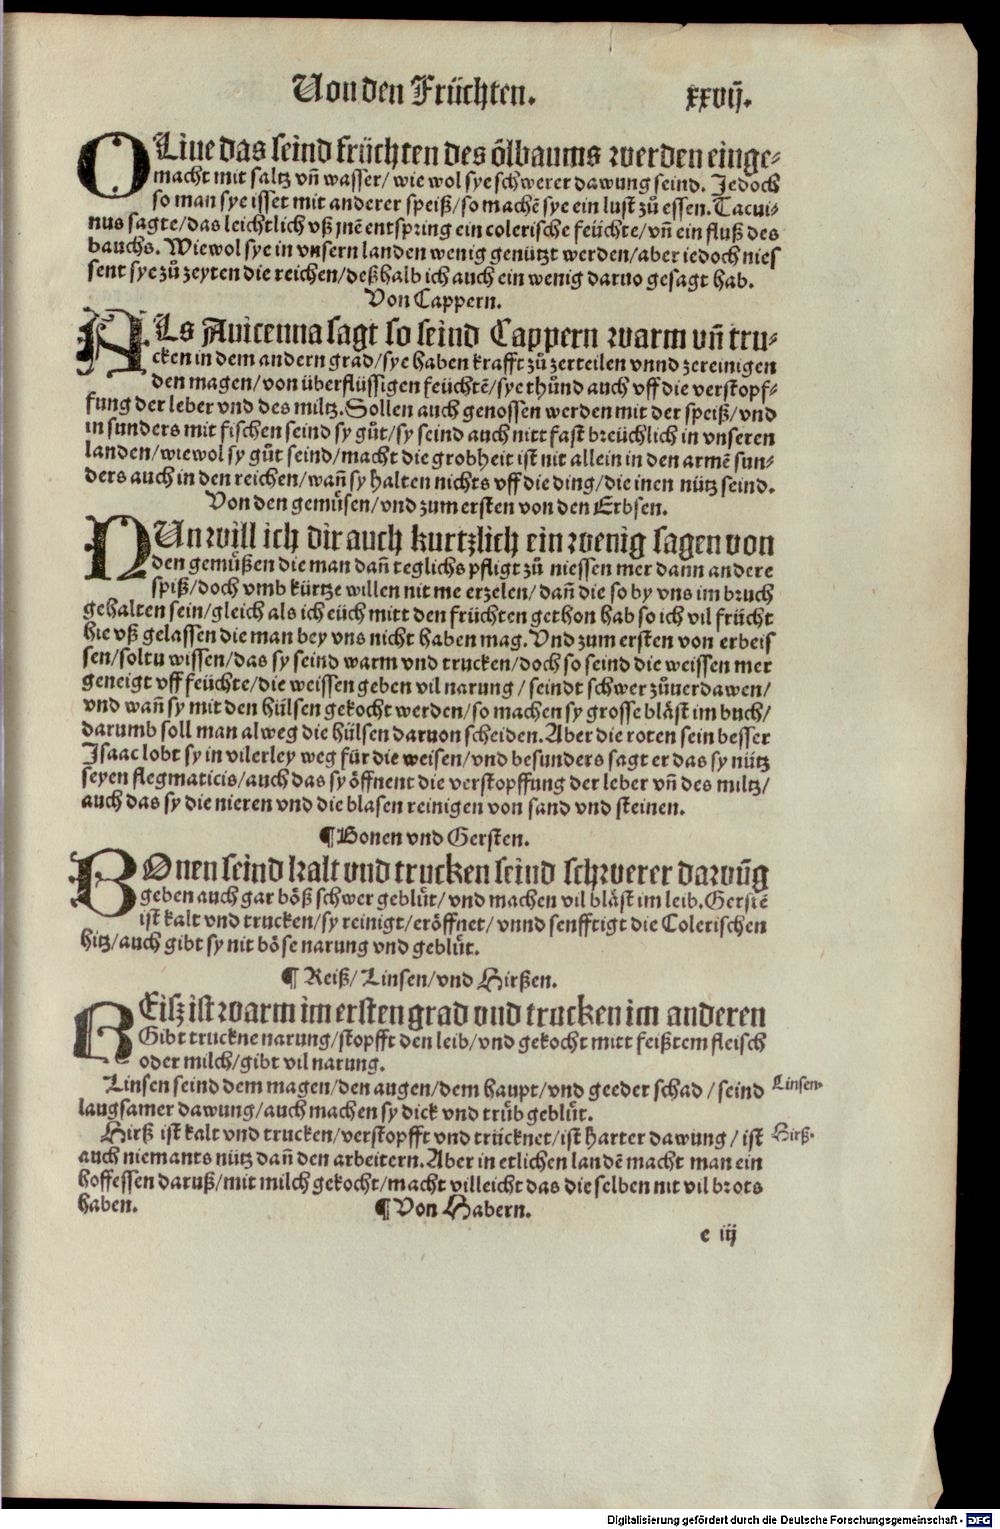 Von den Früchten. xxvij.
OLiue das seind früchten des ölbaums werden einge⸗
macht mit saltz vñ wasser/ wie wol sye schwerer dawung seind. Jedoch
so man sye isset mit anderer speiß/so machẽ sye ein lust zů essen. Tacui⸗
nus sagte/das leichtlich vß jnẽ entspring ein colerische feüchte/vñ ein fluß des
bauchs. Wiewol sye in vnsern landen wenig genützt werden/aber iedoch nies
sent sye zů zeyten die reichen/deßhalb ich auch ein wenig daruo gesagt hab.
Von Cappern.
ALs Auicenna sagt so seind Cappern warm vñ tru⸗
cken in dem andern grad/sye haben krafft zů zerteilen vnnd zereinigen
den magen/von überflüssigen feüchtẽ/sye thůnd auch vff die verstopf⸗
fung der leber vnd des miltz. Sollen auch genossen werden mit der speiß/vnd
in sunders mit fischen seind sy gůt/sy seind auch nitt fast breüchlich in vnseren
landen/wiewol sy gůt seind/macht die grobheit ist nit allein in den armẽ sun⸗
ders auch in den reichen/wañ sy halten nichts vff die ding/die inen nütz seind.
Von den gemüsen/vnd zum ersten von den Erbsen.
NUn will ich dir auch kurtzlich ein wenig sagen von
den gemüßen die man dañ teglichs pfligt zů niessen mer dann andere
spiß/doch vmb kürtze willen nit me erzelen/ dañ die so by vns im bruch
gehalten sein/gleich als ich eüch mitt den früchten gethon hab so ich vil frücht
hie vß gelassen die man bey vns nicht haben mag. Vnd zum ersten von erbeis
sen/soltu wissen/das sy seind warm vnd trucken/doch so seind die weissen mer
geneigt vff feüchte/die weissen geben vil narung / seindt schwer zůuerdawen/
vnd wañ sy mit den hülsen gekocht werden/so machen sy grosse bläst im buch/
darumb soll man alweg die hülsen daruon scheiden. Aber die roten sein besser
Isaac lobt sy in vilerley weg für die weisen/vnd besunders sagt er das sy nütz
seyen flegmaticis/auch das sy öffnent die verstopffung der leber vñ des miltz/
auch das sy die nieren vnd die blasen reinigen von sand vnd steinen.
¶ Bonen vnd Gersten.
BOnen seind kalt vnd trucken seind schwerer dawũg
geben auch gar böß schwer geblüt/ vnd machen vil bläst im leib. Gerstẽ
ist kalt vnd trucken/sy reinigt/eröffnet/ vnnd senfftigt die Colerischen
hitz/auch gibt sy nit böse narung vnd geblüt.
¶ Reiß/ Linsen/vnd Hirßen.
REisz ist warm im ersten grad vnd trucken im anderen
Gibt truckne narung/stopfft den leib/vnd gekocht mitt feißtem fleisch
oder milch/gibt vil narung.
Linsen seind dem magen/den augen/dem haupt/vnd geeder schad / seind
langsamer dawung/auch machen sy dick vnd trüb geblüt.
Linsen.
Hirß ist kalt vnd trucken/verstopfft vnd trücknet/ist harter dawung / ist
auch niemants nütz dañ den arbeitern. Aber in etlichen landẽ macht man ein
hoffessen daruß/mit milch gekocht/macht villeicht das die selben nit vil brots
haben.
Hirß.
¶ Von Habern.
e iij
Digitalisierung gefördert durch die Deutsche Forschungsgemeinschaft - DFG